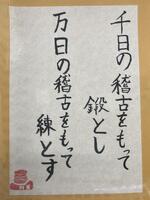 千日の稽古をもって
鍛とし
万日の稽古をもって
練とす